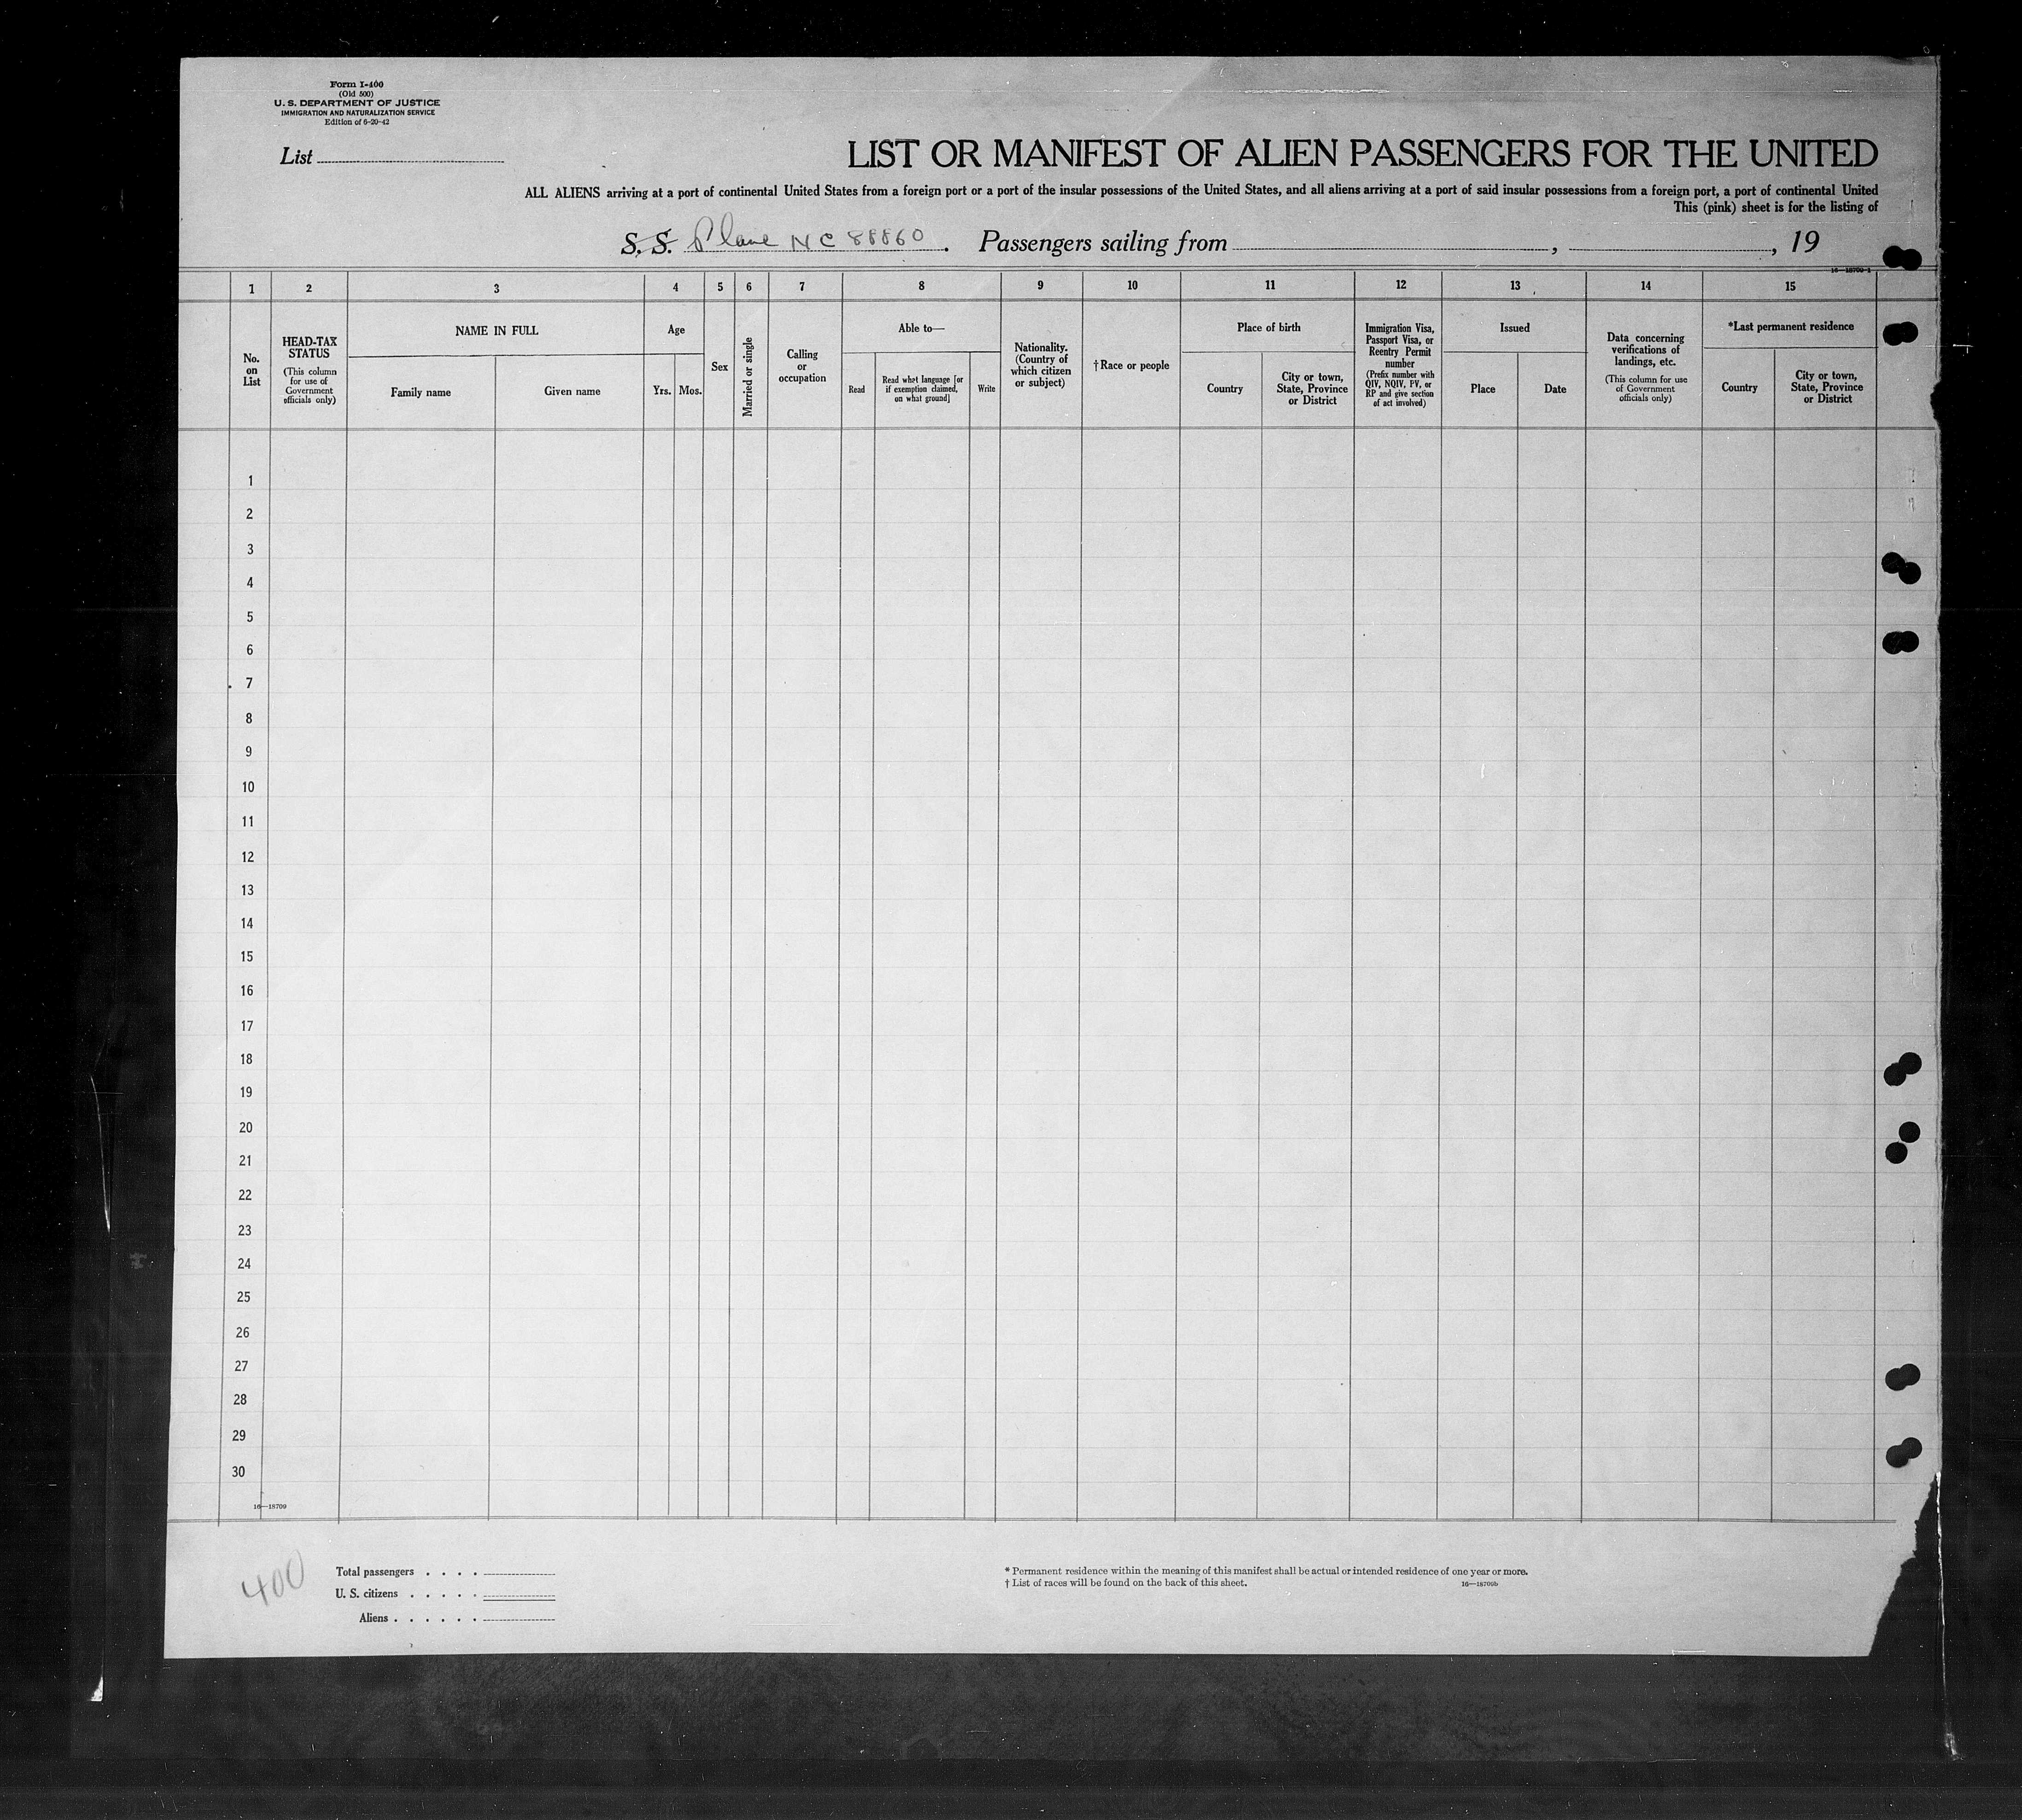 Form I-400
(Old 500)
U. S. DEPARTMENT OF JUSTICE
IMMIGRATION AND NATURALIZATION SERVICE
Edition of 6-20-42
List
LIST OR MANIFEST OF ALIEN PASSENGERS FOR THE UNITED
ALL ALIENS arriving at a port of continental United States from a foreign port or a port of the insular possessions of the United States, and all aliens arriving at a port of said insular possessions from a foreign port, a port of continental United
This (pink) sheet is for the listing of
S. S. Plane NC 88860. Passengers sailing from , , 19
16—18709-1
1 2 3 4 5 6 7 8 9 10 11 12 13 14 15
No. on List
HEAD-TAX STATUS
(This column for use of Government officials only)
NAME IN FULL
Family name
Given name
Age
Yrs.
Mos.
Sex
Married or single
Calling or occupation
Able to—
Read
Read what language [or if exemption claimed, on what ground]
Write
Nationality. (Country of which citizen or subject)
† Race or people
Place of birth
Country
City or town, State, Province or District
Immigration Visa, Passport Visa, or Reentry Permit number
(Prefix number with QIV, NQIV, PV, or RP and give section of act involved)
Issued
Place
Date
Data concerning verifications of landings, etc.
(This column for use of Government officials only)
*Last permanent residence
Country
City or town, State, Province or District
1
2
3
4
5
6
7
8
9
10
11
12
13
14
15
16
17
18
19
20
21
22
23
24
25
26
27
28
29
30
16—18709
400
Total passengers . . . .
U. S. citizens . . . . .
Aliens . . . . . .
* Permanent residence within the meaning of this manifest shall be actual or intended residence of one year or more.
† List of races will be found on the back of this sheet.
16—18709b